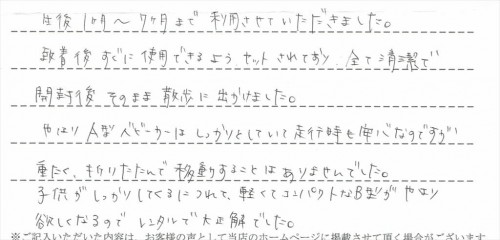 生後1ヶ月〜7ヶ月まで利用させていただきました。
到着後すぐに使用できるようセットされており、全て清潔で
開封後そのまま散歩に出かけました。
やはりA型ベビーカーはしっかりとしていて走行時も安心なのですが
重たく、折りたたんで移動することはありませんでした。
子供がしっかりしてくるにつれて、軽くてコンパクトなB型がやはり
欲しくなるのでレンタルで大正解でした。
※ご記入いただいた内容は、お客様の声として当店のホームページに掲載させて頂く場合がございます